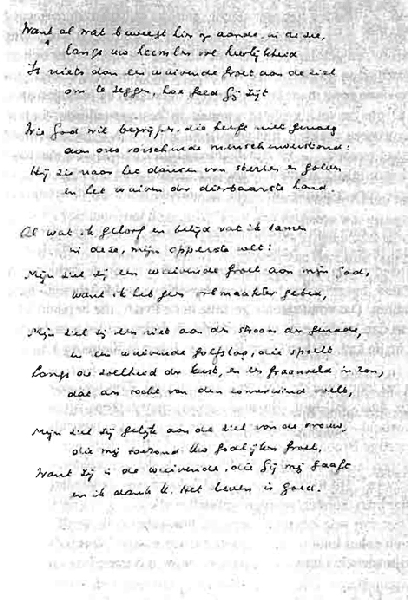 Want al wat beweegt hier op aarde, in de zee,
langs uw hemelen vol heerlijkheid
Is niets dan een wuivende groet aan de ziel
om te zeggen, hoe goed Gij zijt
Wie God wil begrijpen, die heeft niet genoeg
aan ons verscheurde menschenverstand:
Hij zie naar het dansen van sterren en golven
en het wuiven der dierbaarste hand.
Al wat ik geloof en belijd vat ik samen
in deze, mijn opperste wet:
Mijn ziel zij een wuivende groet aan mijn God,
want ik heb geen volmaakter gebed,
Mijn ziel zij een riet aan de stroom der genade,
en een wuivende golfslag, die speelt
langs de zoelheid der kust, en een graanveld in zon,
dat de tocht van den zomerwind streelt,
Mijn ziel zij gelijk aan de ziel van de vrouw,
die mij Uw goddelijken groet,
Want zij is de wuivende, die Gij mij gaaft
en ik dank U. Het leven is goed.